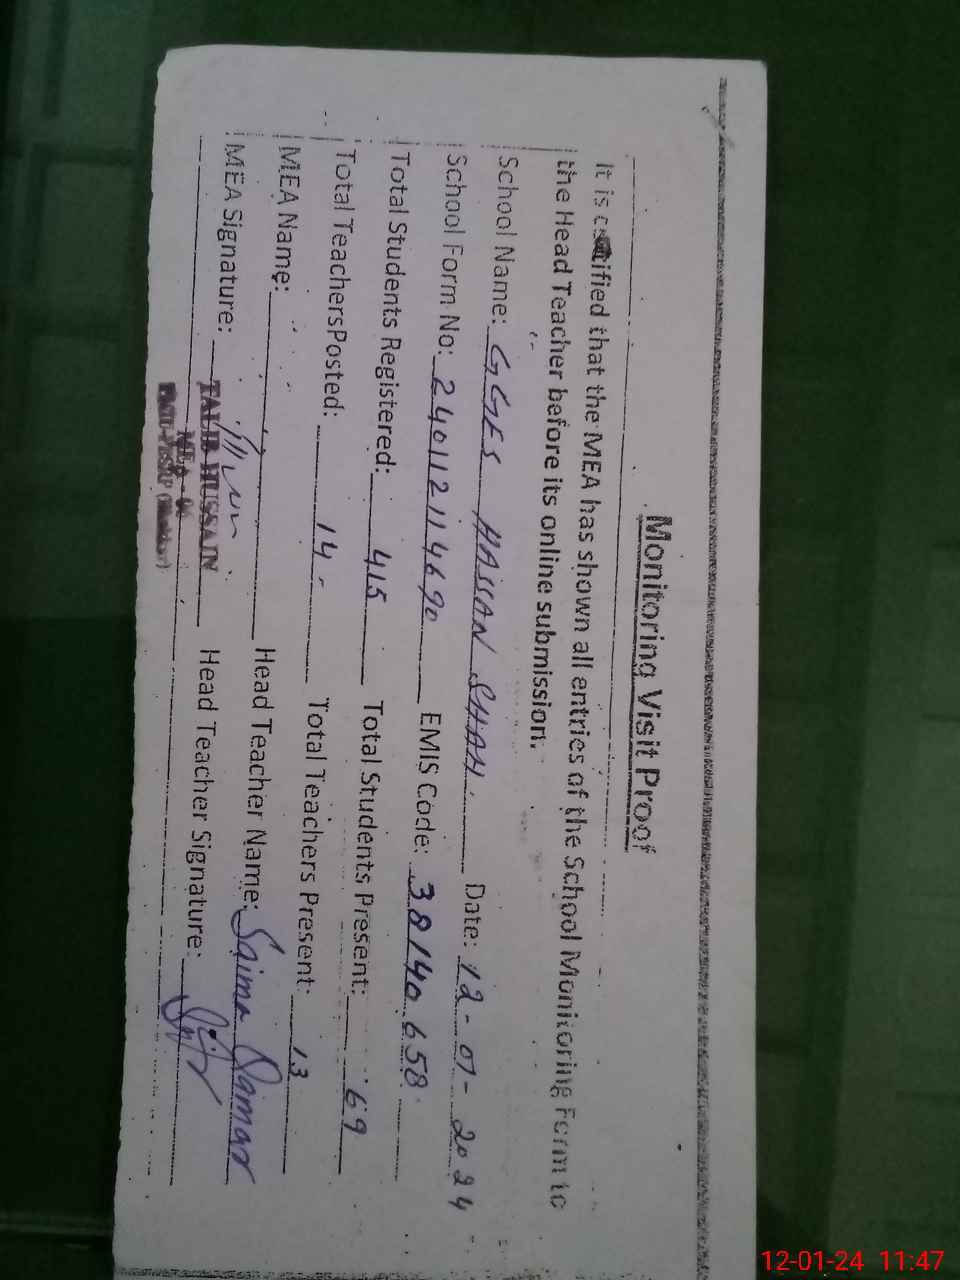 Monitoring Visit Proof
It is certified that the MEA has shown all entries of the School Monitoring Form to
the Head Teacher before its online submission.
School Name: GGES HASSAN SHAH. Date: 12-01-2024
School Form No: 240112114690 EMIS Code: 38140658
Total Students Registered: 415 Total Students Present: 69
Total Teachers Posted: 14 Total Teachers Present: 13
MEA Name: Head Teacher Name: Saima
MEA Signature: Head Teacher Signature:
TALIB HUSSAIN
MEA
12-01-24 11:47